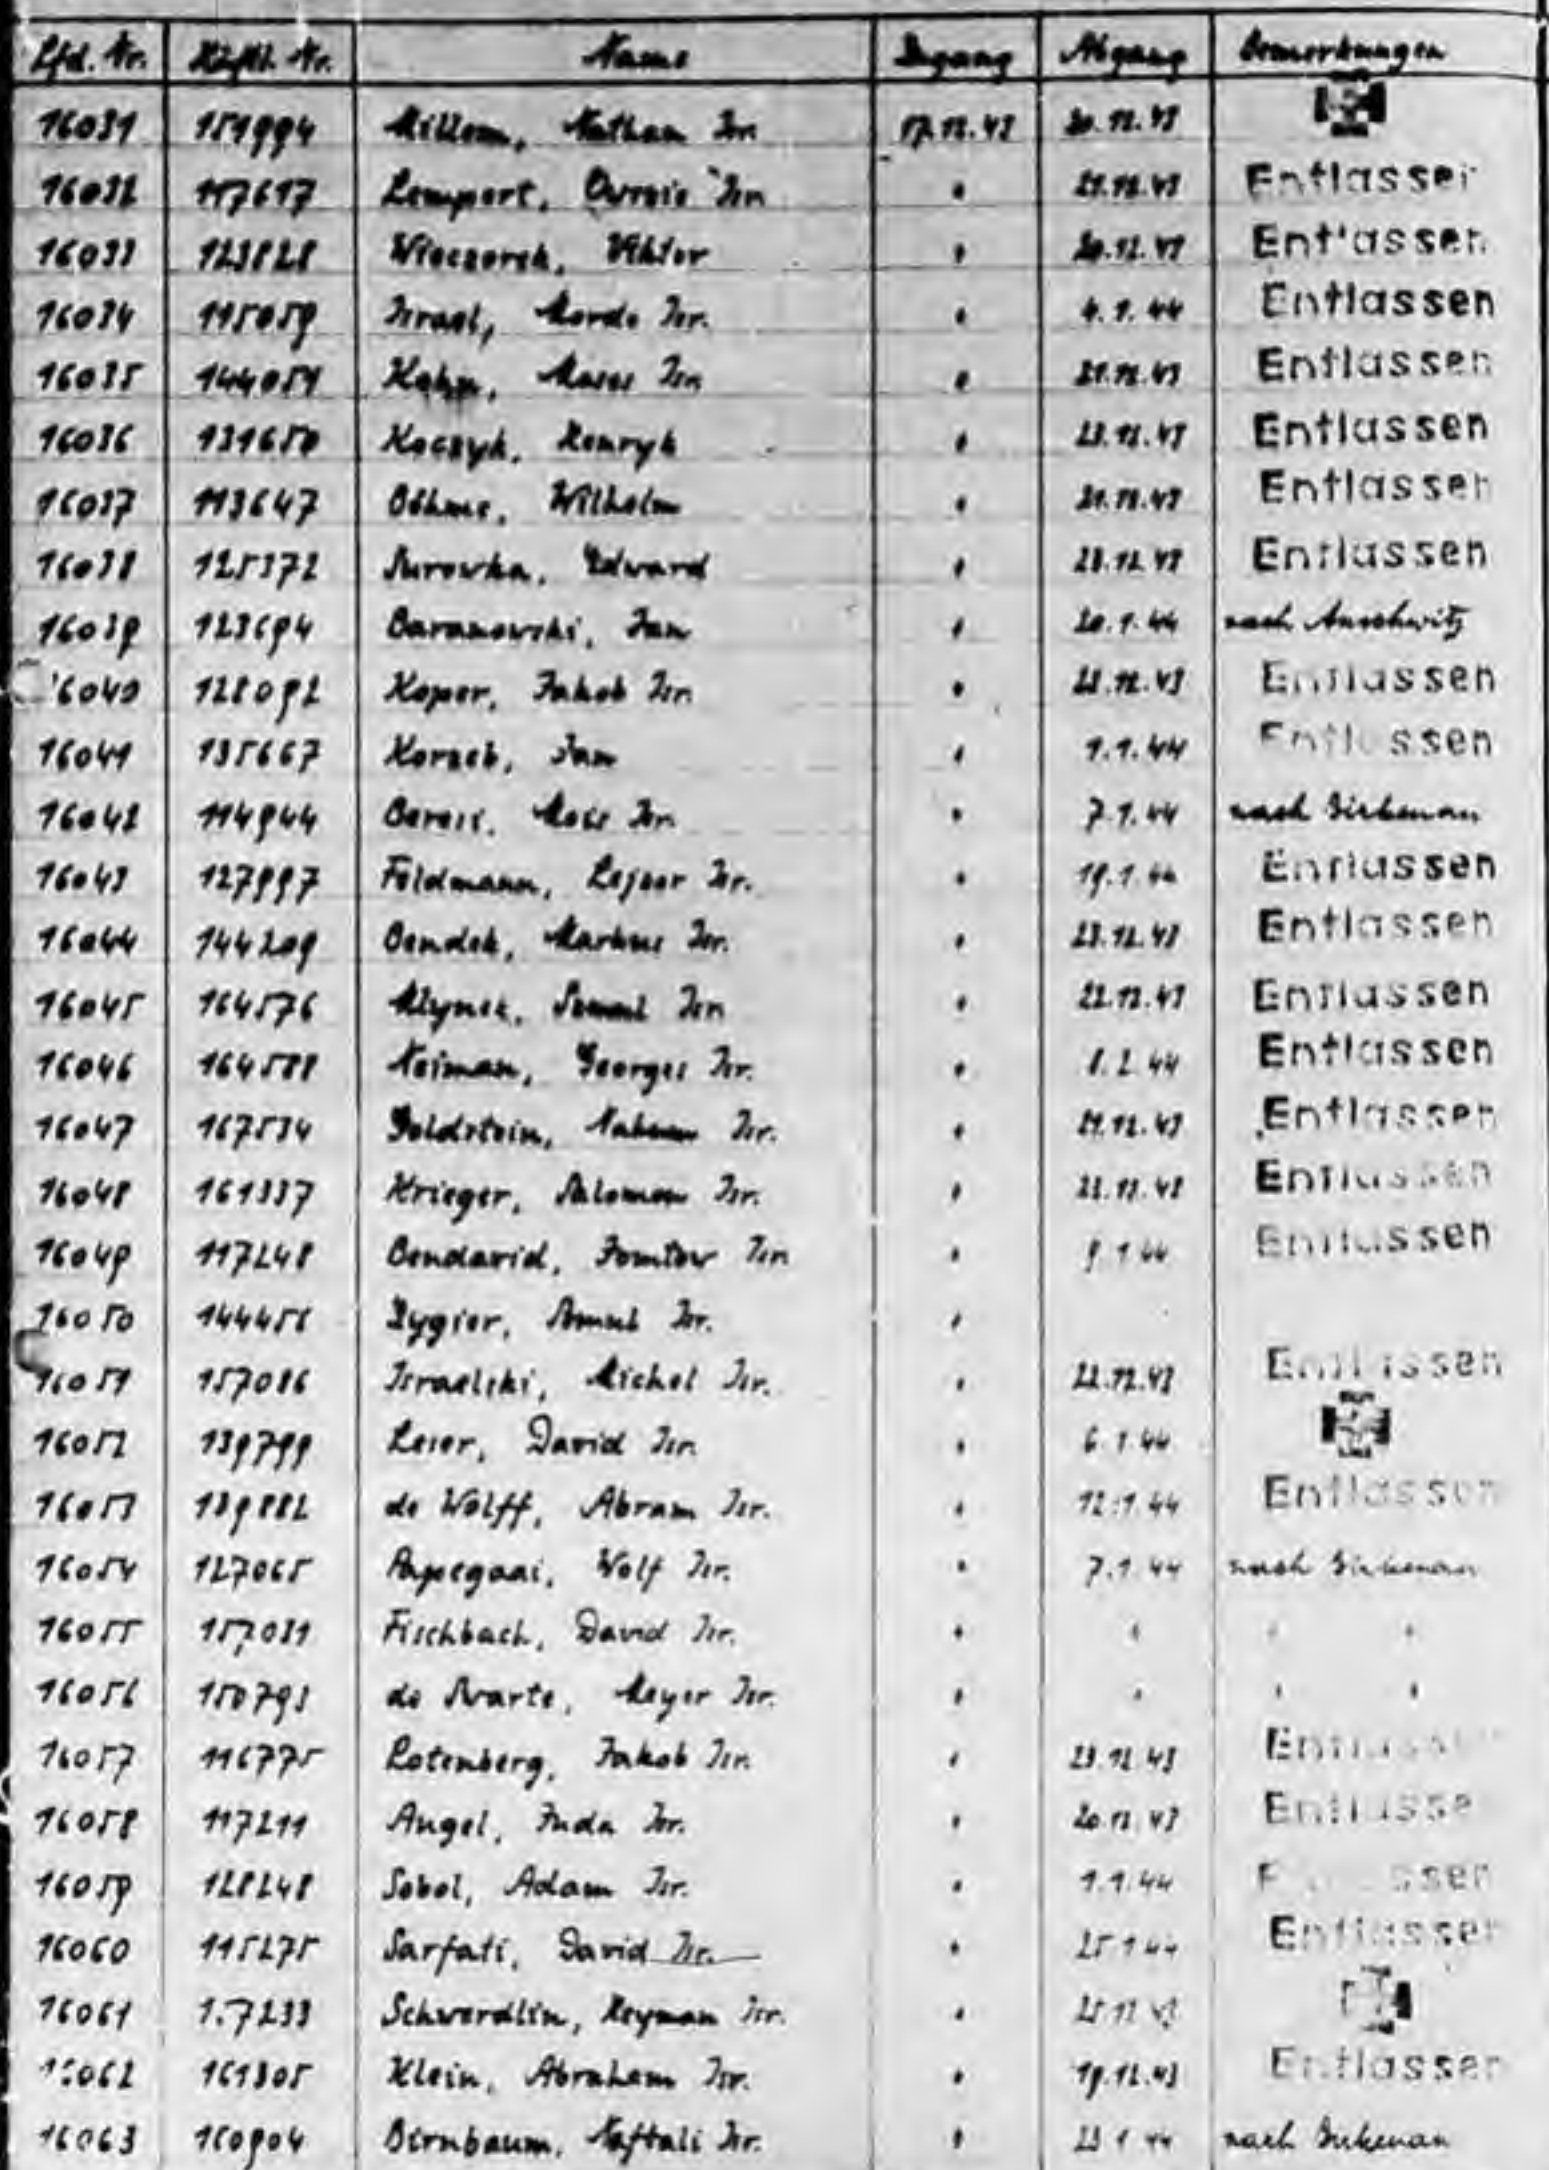 Lfd. Nr. Häftl. Nr. Name Zugang Abgang Bemerkungen
16031 151994 Millem, Nathan Isr. 17.12.43 20.12.43
16032 117617 Lempert, Isr. " 21.12.43 Entlassen
16033 123828 Wieczorek, Viktor " 20.12.43 Entlassen
16034 115059 Israel, Mordo Isr. " 4.1.44 Entlassen
16035 144051 Hahn, Moses Isr. " 21.12.43 Entlassen
16036 131650 Koczyk, Henryk " 23.12.43 Entlassen
16037 113647 Böhme, Wilhelm " 21.12.43 Entlassen
16038 125372 Surowka, Edward " 23.12.43 Entlassen
16039 123694 Baranowski, Jan " 20.1.44 nach Auschwitz
16040 128092 Koper, Jakob Isr. " 23.12.43 Entlassen
16041 135667 Korzeb, Jan " 1.1.44 Entlassen
16042 114944 Isr. " 7.1.44 nach Birkenau
16043 127997 Feldmann, Lejser Isr. " 19.1.44 Entlassen
16044 144209 Bendek, Markus Isr. " 23.12.43 Entlassen
16045 164576 Mlynek, Samuel Isr. " 22.12.43 Entlassen
16046 164588 Neiman, Georges Isr. " 8.2.44 Entlassen
16047 167534 Goldstein, Nahum Isr. " 21.12.43 Entlassen
16048 161337 Krieger, Salomon Isr. " 22.12.43 Entlassen
16049 117248 Bendavid, Jomtow Isr. " 9.1.44 Entlassen
16050 144456 Zygier, Isr. "
16051 157086 Israelski, Michel Isr. " 22.12.43 Entlassen
16052 139799 Leser, David Isr. " 6.1.44
16053 139882 de Wolff, Abram Isr. " 12.1.44 Entlassen
16054 127065 Papegaai, Wolf Isr. " 7.1.44 nach Birkenau
16055 157031 Fischbach, David Isr. " " " "
16056 150793 de Swarte, Meyer Isr. " " " "
16057 116775 Rotenberg, Jakob Isr. " 23.12.43 Entlassen
16058 117211 Angel, Juda Isr. " 20.12.43 Entlassen
16059 128248 Sobol, Adam Isr. " 1.1.44 Entlassen
16060 115275 Sarfati, David Isr. " 25.1.44 Entlassen
16061 Schwerdlin, Heyman Isr. " 25.12.43
16062 161305 Klein, Abraham Isr. " 19.12.43 Entlassen
16063 160904 Birnbaum, Naftali Isr. " 23.1.44 nach Birkenau